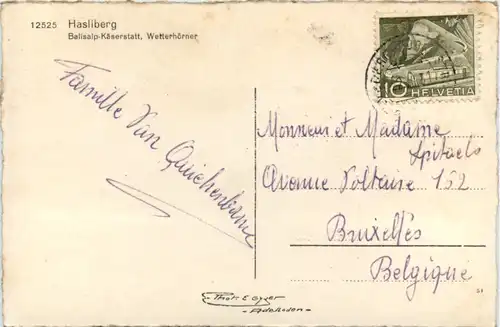 12525 Hasliberg
Balisalp-Käserstatt, Wetterhörner
10 HELVETIA
Famille Van
Monsieur et Madame
Spitaels
Avenue Voltaire 152
Bruxelles
Belgique
Phot. E. Gyger
Adelboden